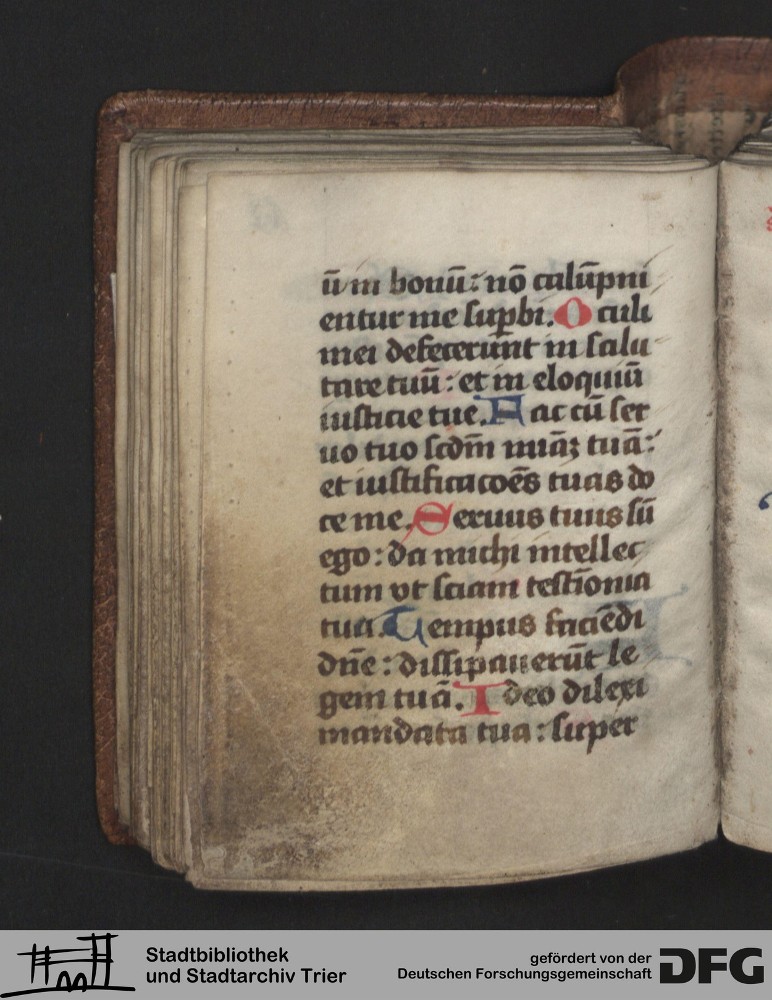 ū in bonū: nō calūpni
entur me suꝑbi. Oculi
mei defecerūnt in salu
tare tuū: et in eloquiū
iusticie tue. Fac cū ser
uo tuo scd̄m mīaꝫ tuā:
et iustificacōēs tuas do
ce me. Seruus tuus sū
ego: da michi intellec
tum vt sciam testīonia
tua. Tempus faciēdi
dn̄e: dissipauerūt le
gem tuā. Ideo dilexi
mandata tua: super
Stadtbibliothek
und Stadtarchiv Trier
gefördert von der
Deutschen Forschungsgemeinschaft
DFG